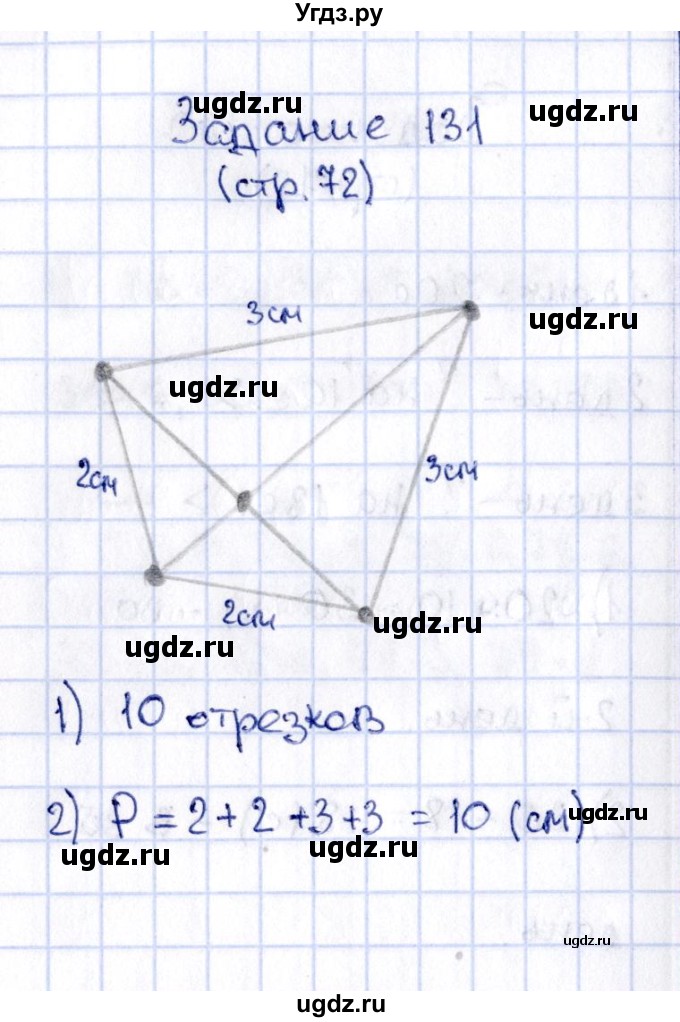 Угдз.ру
ugdz.ru
ugdz.ru
Задание 131
(стр. 72)
3см
ugdz.ru
ugdz.ru
2см
3см
2см
ugdz.ru
ugdz.ru
1) 10 отрезков
2) P = 2 + 2 + 3 + 3 = 10 (см)
ugdz.ru
ugdz.ru
ugdz.ru
ugdz.ru